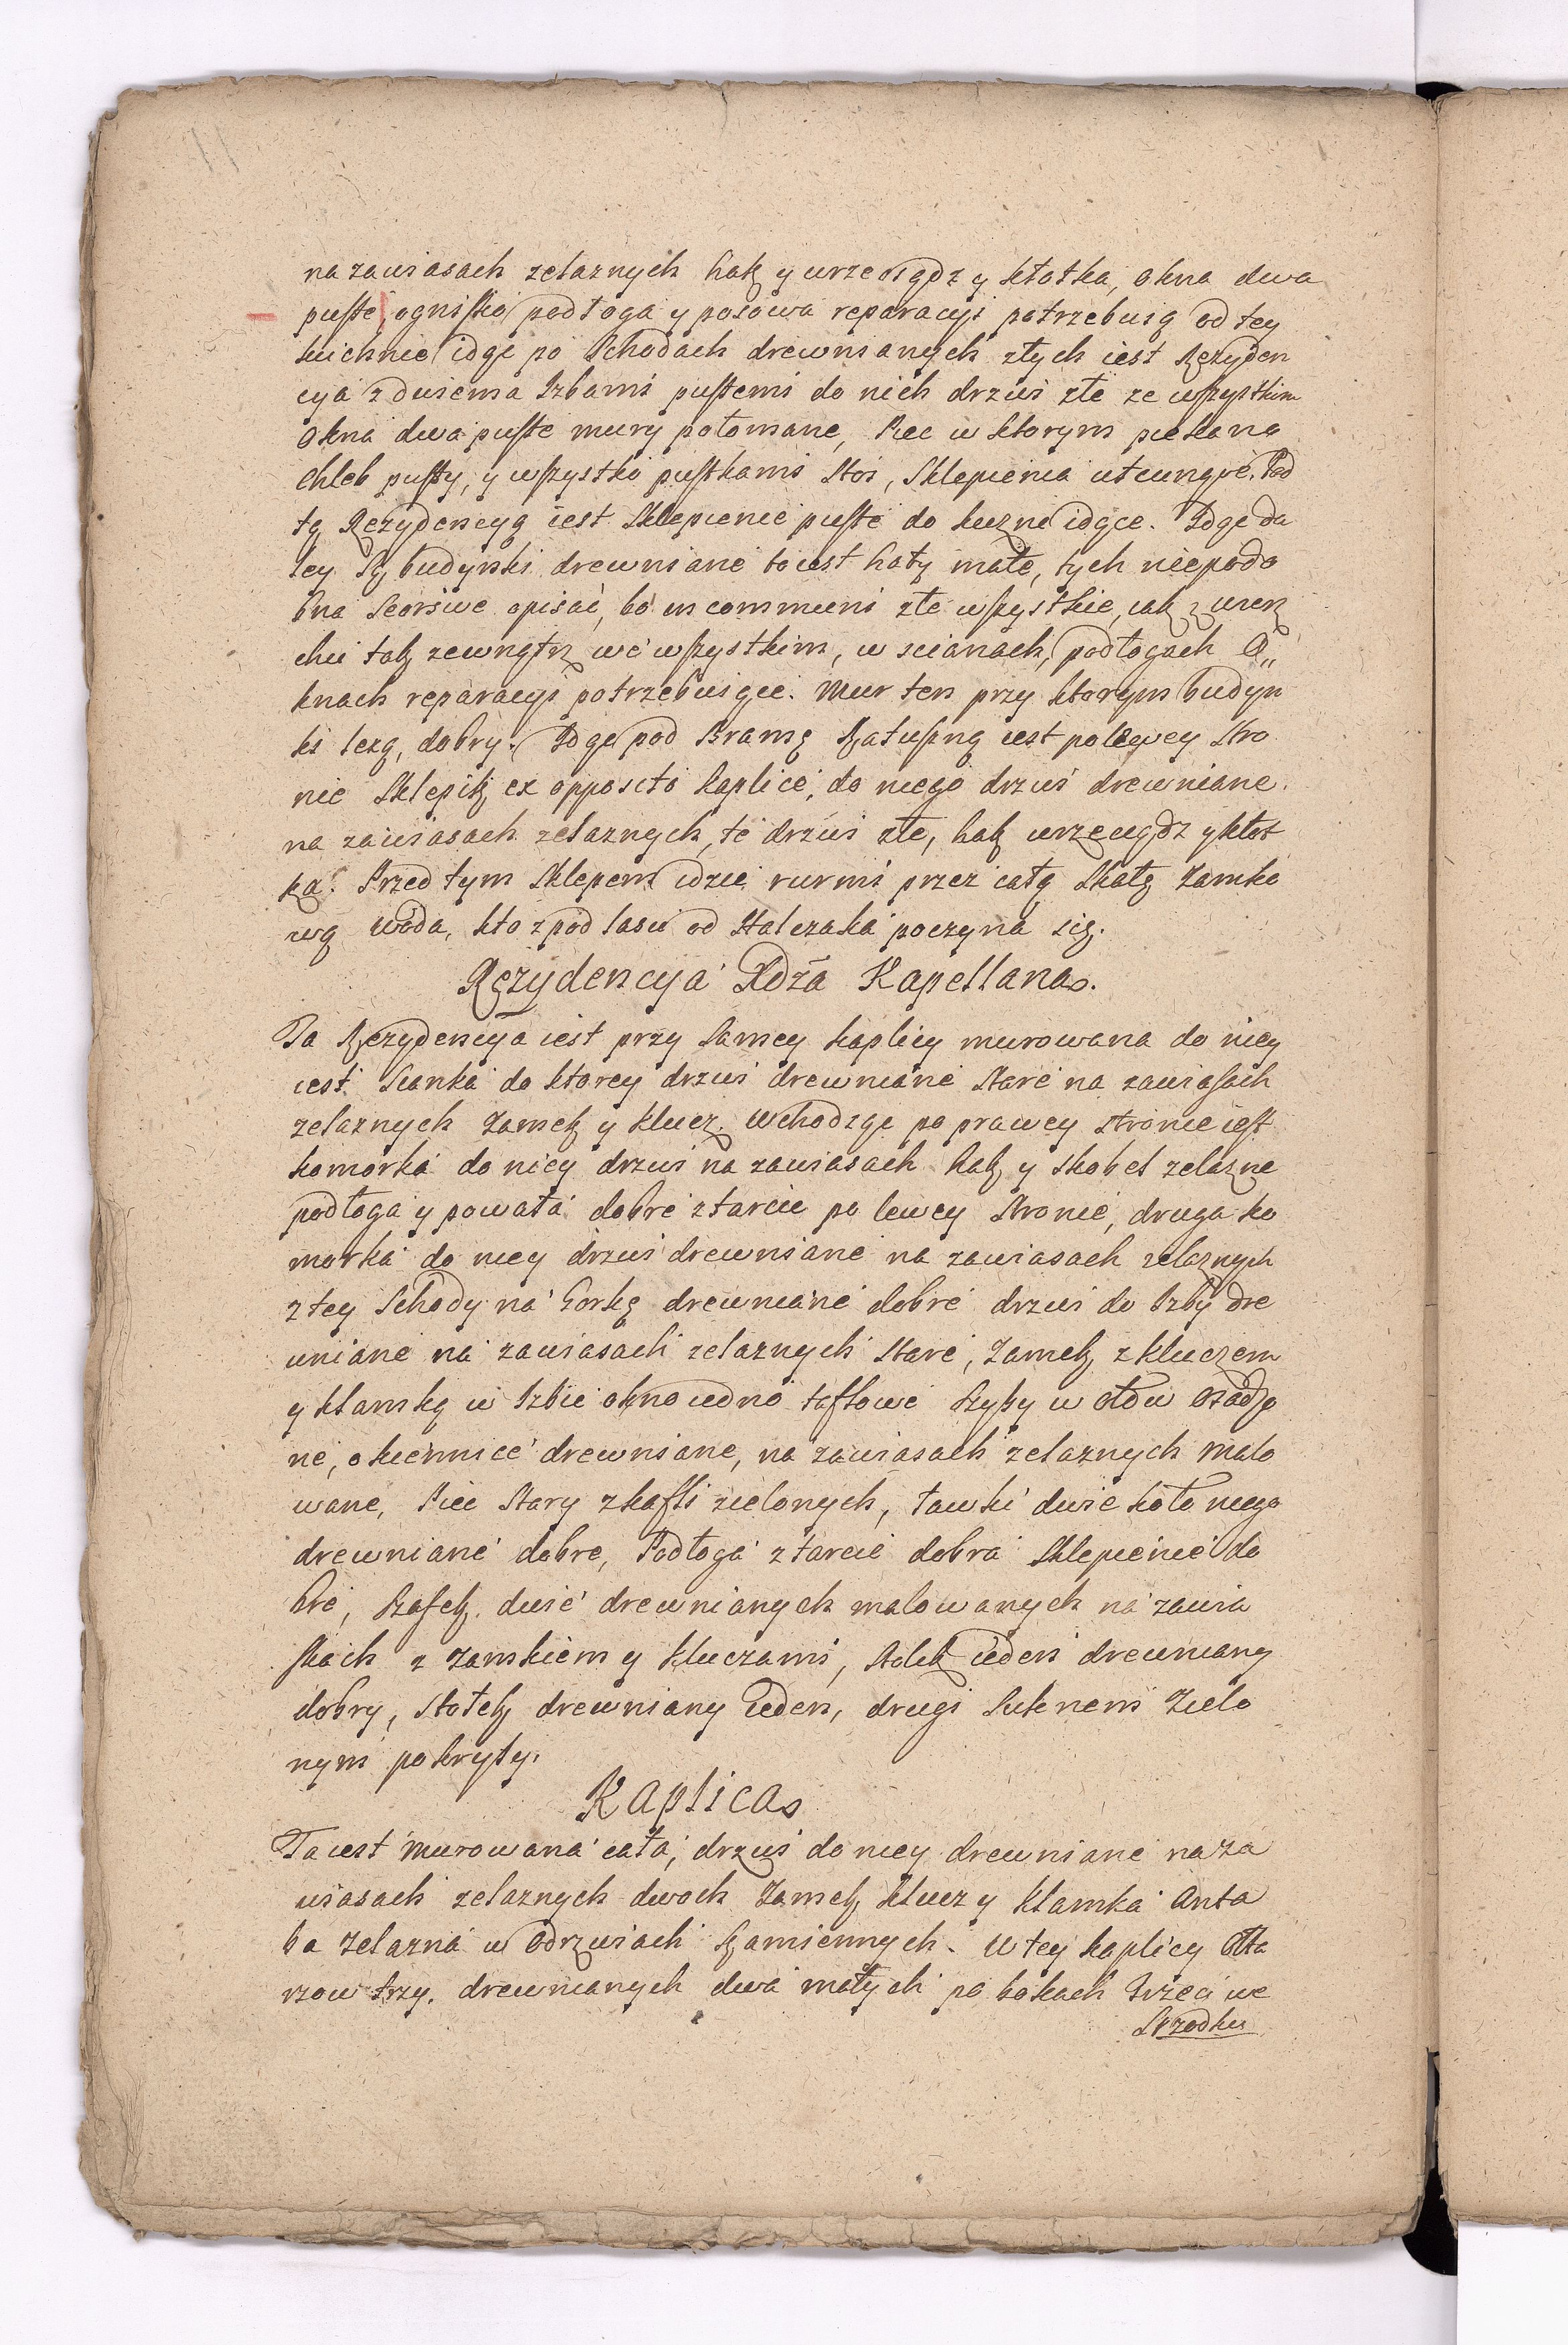 11
na zawiasach zelaznych hak y wrzeciądz y kłotka, okna dwa
puste, ognisko podłoga y posowa reparacyi potrzebuią od tey
kuchnie idąc po schodach drewnianych złych iest Rezyden
cya z dwiema Izbami pustemi do nich drzwi złe ze wszystkim
Okna dwa puste mury połomane, Piec w ktorym piekano
chleb pusty, y wszystko pustkami stoi, Sklepienia utcunqve. Pod
tą Rezydencyą iest Sklepienie puste do kuzni idące. Idąc da
ley Są budynki drewniane to iest haty małe, tych niepodo
bna seorsive opisać, bo in communi złe wszystkie, iak z wierz
chu tak zewnątrz we wszystkim, w scianach, podłogach O„
knach reparacyi potrzebuiące. Mur ten przy ktorym budyn
ki lezą, dobry. Idąc pod Bramę Ratuszną iest po lewey stro
nie Sklepik ex opposito kaplice, do niego drzwi drewniane.
na zawiasach zelaznych, te drzwi złe, hak wrzeciądz y kłot
ka. Przed tym Sklepem idzie rurmi przez całą Skałę Zamko
wą woda, kto z pod lasu od Halczaka poczyna się.
Rezydencya Xdza Kapellana.
Ta Rezydencya iest przy samey kaplicy murowana do niey
iest Sianka do ktorey drzwi drewniane stare na zawiasach
zelaznych Zamek y klucz. Wchodząc po prawey stronie iest
komorka do niey drzwi na zawiasach hak y skobel zelazne
podłoga y powała dobre z tarcic po lewey stronie, druga ko
morka do niey drzwi drewniane na zawiasach zelaznych
z tey Schody na Gorkę drewniane dobre drzwi do Izby dre
wniane na zawiasach zelaznych stare, Zamek z kluczem
y klamką w Izbie okno iedno taflowe Szyby w ołow osadzo
ne, okiennice drewniane, na zawiasach zelaznych malo
wane, Piec stary z kafli zielonych, ławki dwie koło niego
drewniane dobre, Podłoga z tarcic dobra Sklepienie do
bre, Szafek dwie drewnianych malowanych na zawia
skach z zamkiem y kluczami, stolik ieden drewniany
dobry, stołek drewniany ieden, drugi Suknem zielo
nym pokryty.
Kaplica
Ta iest murowana cała, drzwi do niey drewniane na za
wiasach zelaznych dwoch Zamek klucz y klamka Anta
ba zelazna w odrzwiach kamiennych. W tey kaplicy Ołta
rzow trzy. drewnianych dwa małych po bokach Trzeci we
Srzodku